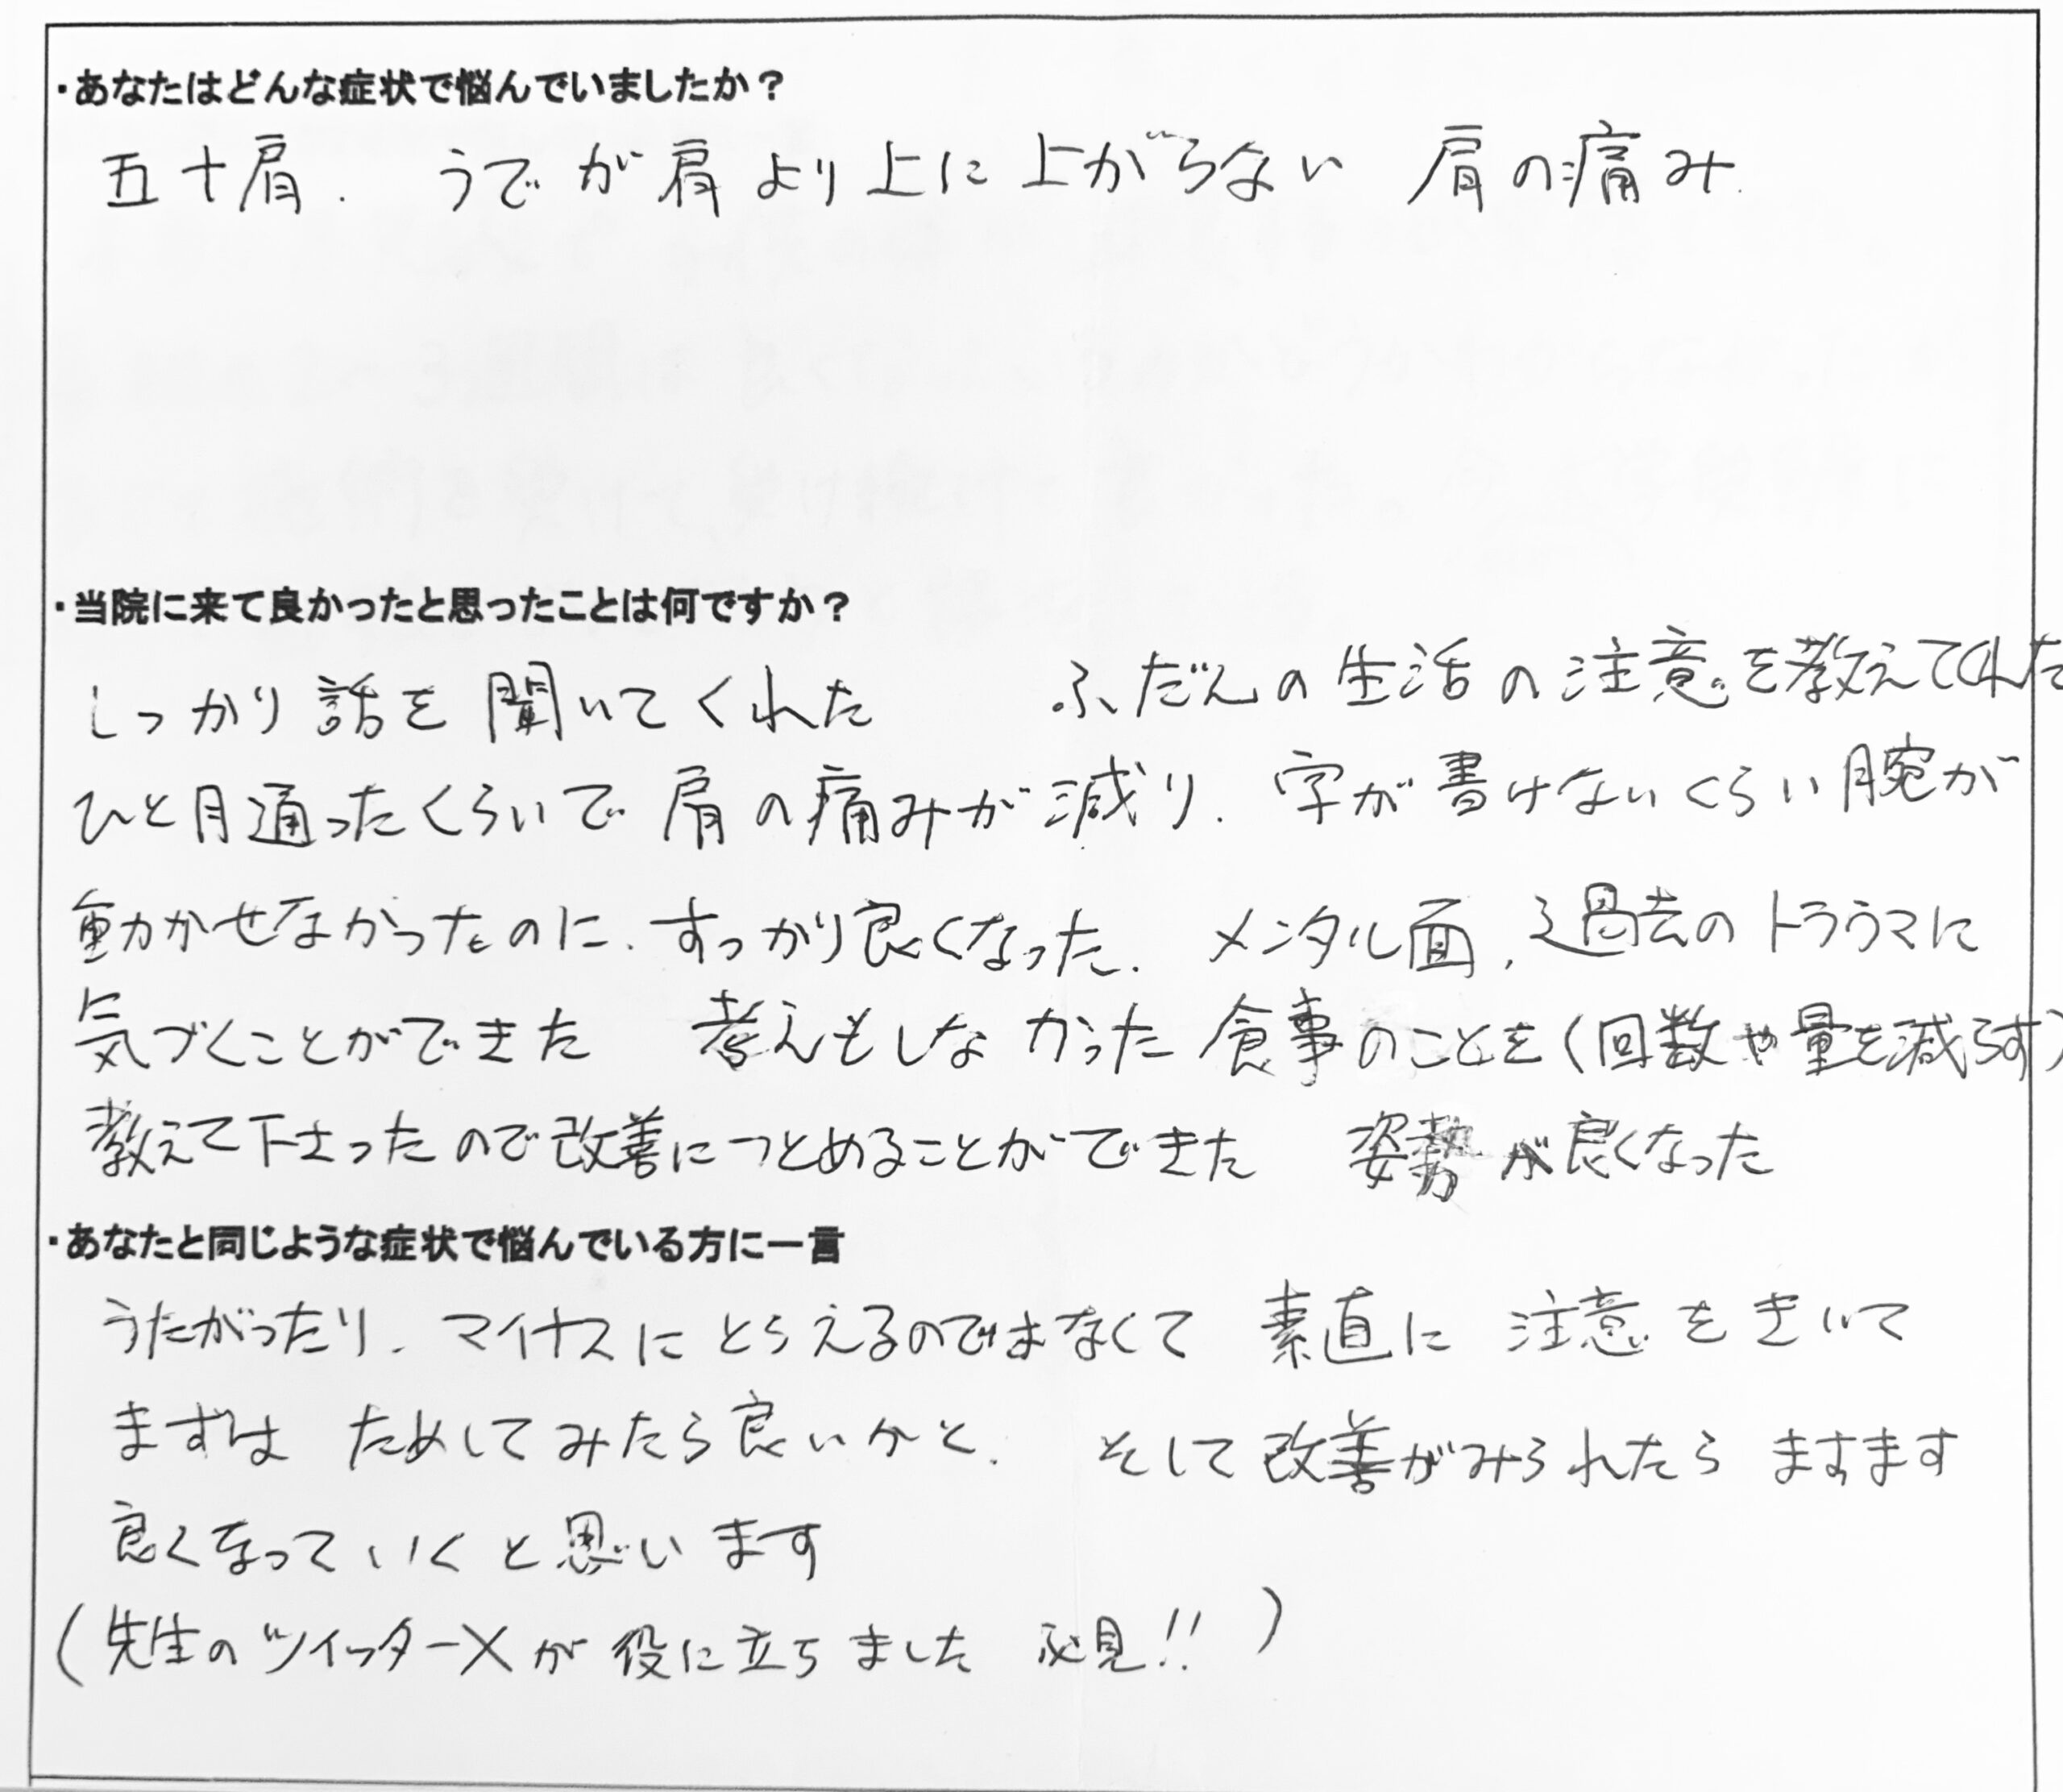 ・あなたはどんな症状で悩んでいましたか？
五十肩. うでが肩より上に上がらない 肩の痛み.
・当院に来て良かったと思ったことは何ですか？
しっかり話を聞いてくれた ふだんの生活の注意を教えてくれた
ひと月通ったくらいで肩の痛みが減り. 字が書けないくらい腕が
動かせなかったのに、すっかり良くなった. メンタル面, 過去のトラウマに
気づくことができた 考えもしなかった食事のことを(回数や量を減らす)
教えて下さったので改善につとめることができた 姿勢が良くなった
・あなたと同じような症状で悩んでいる方に一言
うたがったり. マイナスにとらえるのではなくて 素直に 注意をきいて
まずは ためしてみたら良いかと. そして改善がみられたら ますます
良くなっていくと思います
(先生のツイッターXが役に立ちました 必見!!)